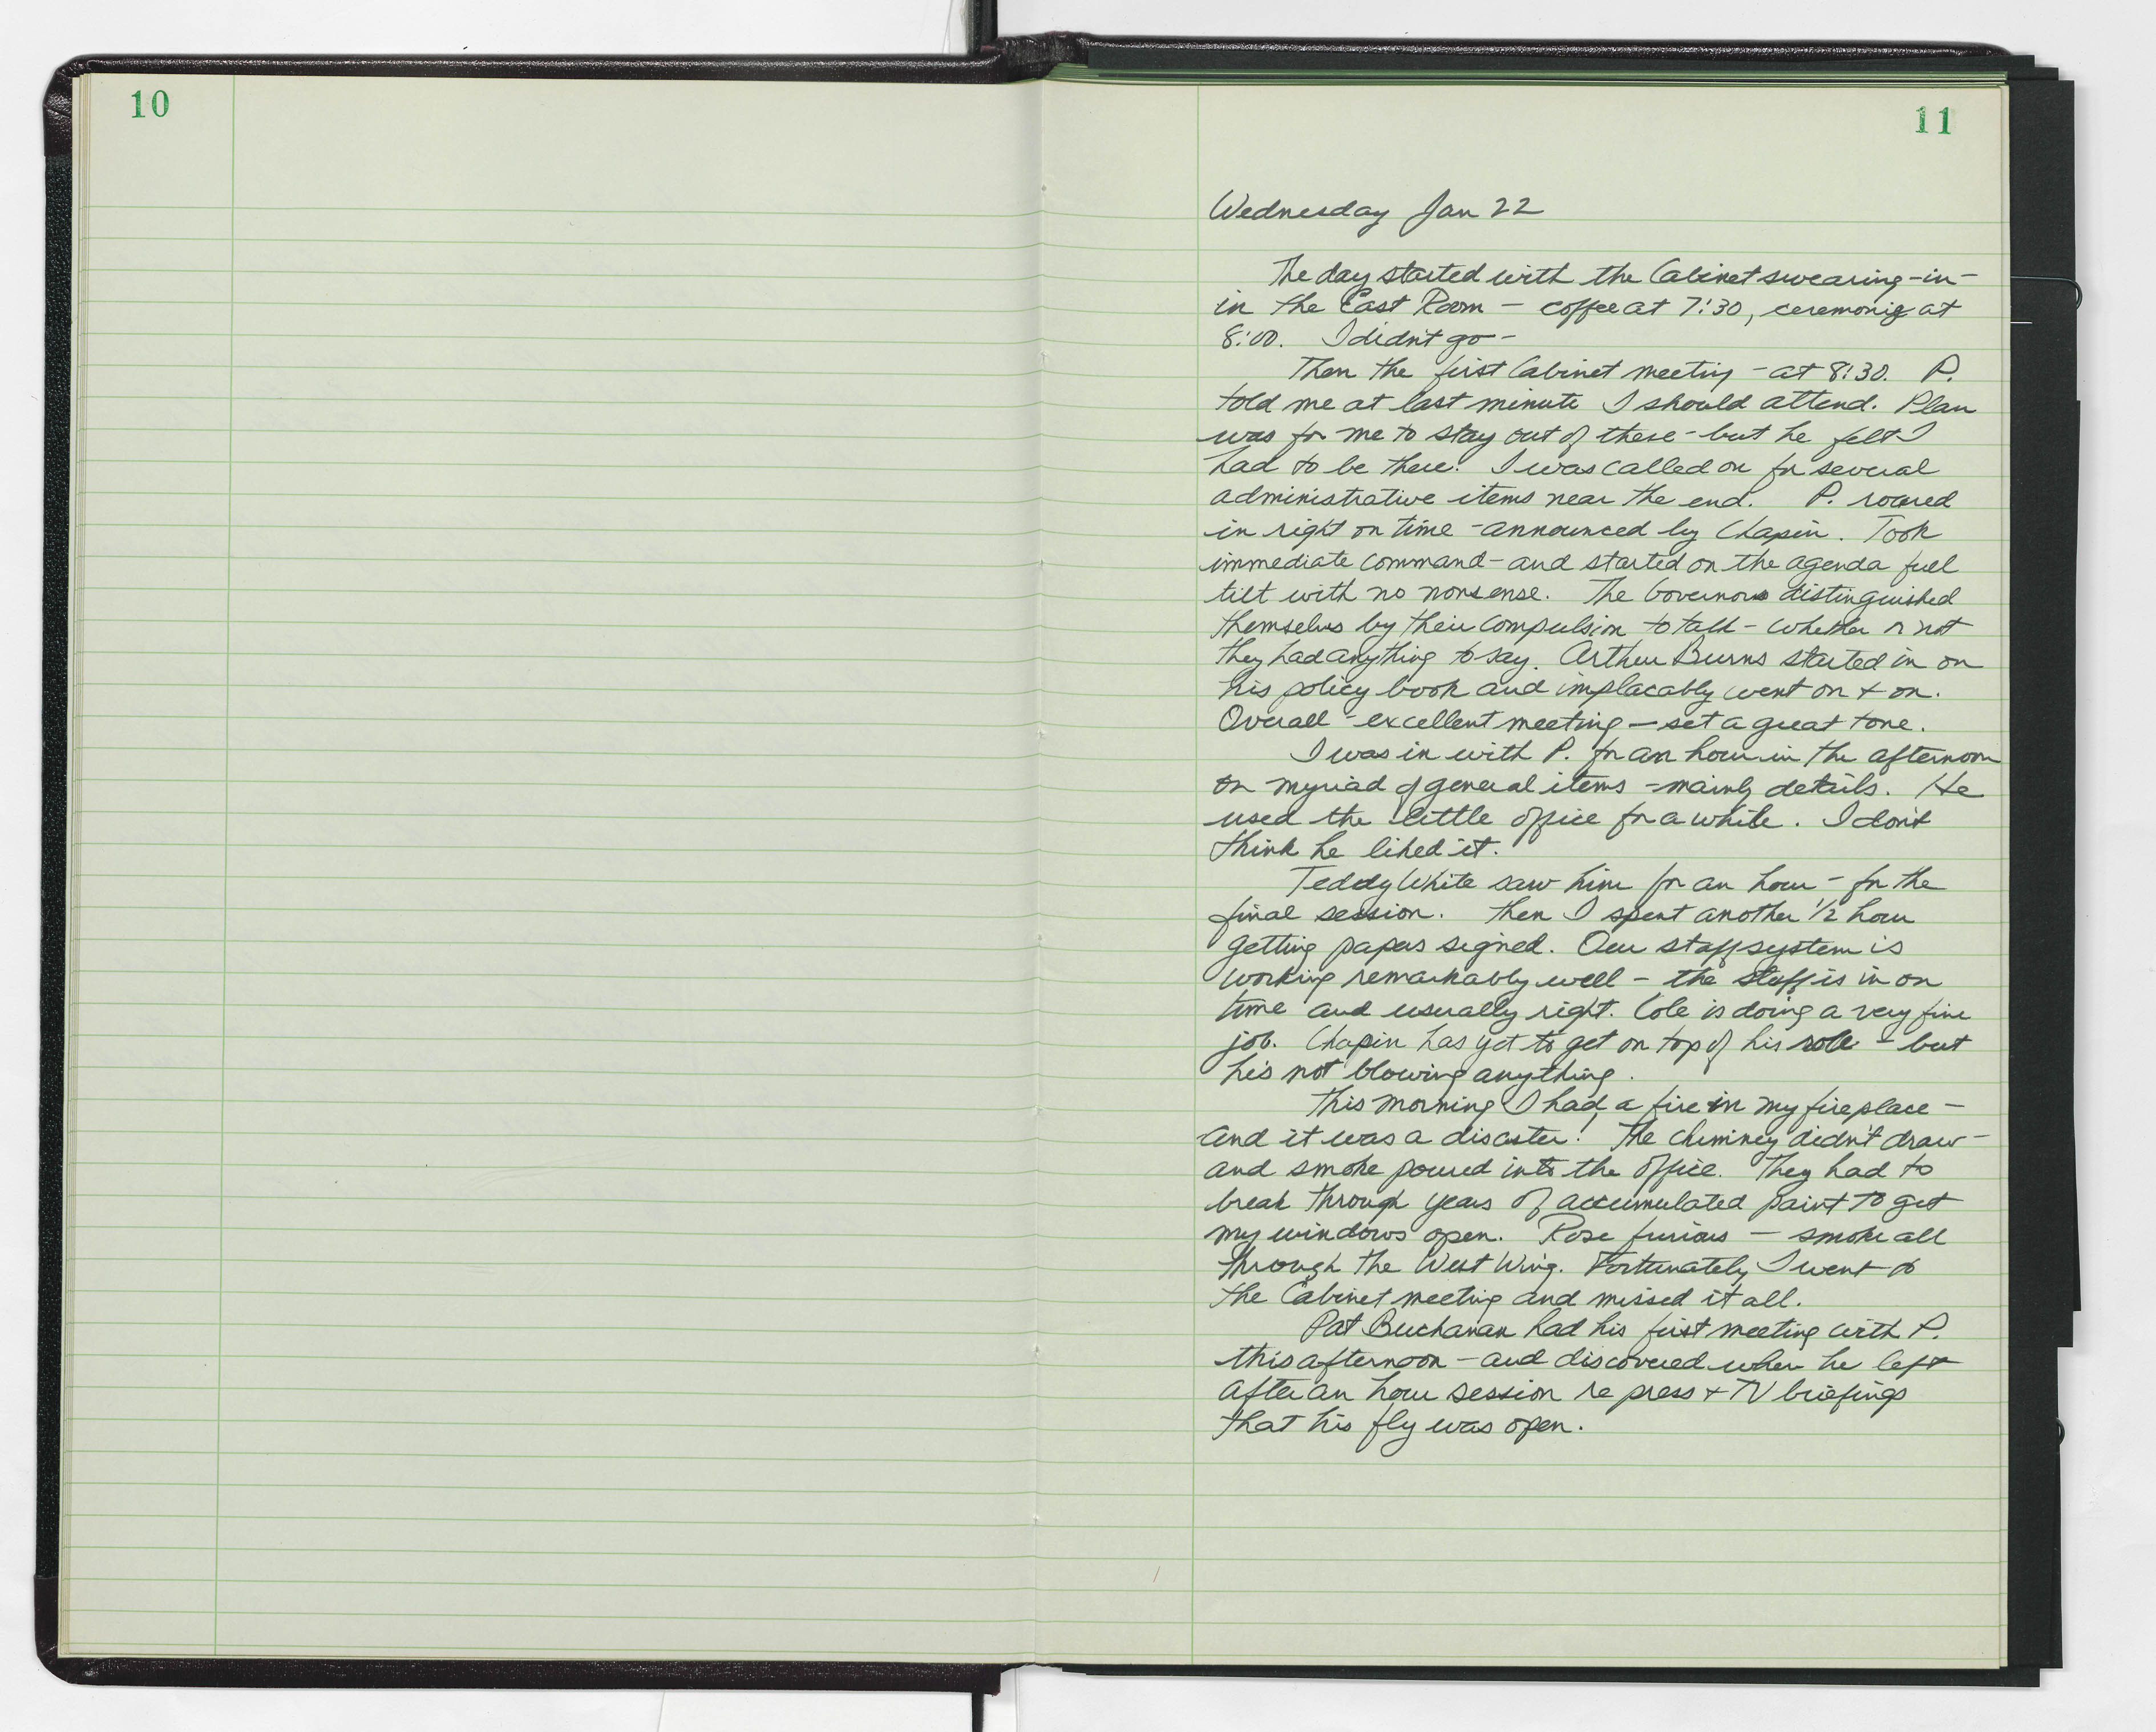 10
11
Wednesday Jan 22
The day started with the Cabinet swearing-in-
in the East Room — coffee at 7:30, ceremony at
8:00. I didn't go -
Then the first Cabinet meeting - at 8:30. P.
told me at last minute I should attend. Plan
was for me to stay out of these - but he felt I
had to be there. I was called on for several
administrative items near the end. P. roared
in right on time - announced by Chapin. Took
immediate command - and started on the agenda full
tilt with no nonsense. The Governors distinguished
themselves by their compulsion to talk - whether or not
they had anything to say. Arthur Burns started in on
his policy book and implacably went on + on.
Overall - excellent meeting — set a great tone.
I was in with P. for an hour in the afternoon
on myriad of general items - mainly details. He
used the little office for a while. I don't
think he liked it.
Teddy White saw him for an hour - for the
final session. Then I spent another 1/2 hour
getting papers signed. Our staff system is
working remarkably well - the stuff is in on
time and usually right. Cole is doing a very fine
job. Chapin has yet to get on top of his role - but
he's not blowing anything.
This morning I had a fire in my fireplace —
and it was a disaster! The chimney didn't draw -
and smoke poured into the office. They had to
break through years of accumulated paint to get
my windows open. Rose furious — smoke all
through the West Wing. Fortunately I went to
the Cabinet meeting and missed it all.
Pat Buchanan had his first meeting with P.
this afternoon - and discovered when he left
after an hour session re press + TV briefings
that his fly was open.